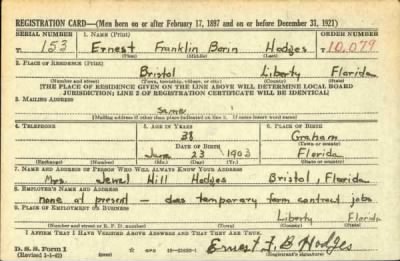 REGISTRATION CARD—(Men born on or after February 17, 1897 and on or before December 31, 1921)
SERIAL NUMBER 1. NAME (Print) ORDER NUMBER
T 153 Ernest Franklin Bonn Hodges T 10,079
(First) (Middle) (Last)
2. PLACE OF RESIDENCE (Print)
Bristol Liberty Florida
(Number and street) (Town, township, village, or city) (County) (State)
[THE PLACE OF RESIDENCE GIVEN ON THE LINE ABOVE WILL DETERMINE LOCAL BOARD
JURISDICTION; LINE 2 OF REGISTRATION CERTIFICATE WILL BE IDENTICAL]
3. MAILING ADDRESS
same
[Mailing address if other than place indicated on line 2. If same insert word same]
4. TELEPHONE 5. AGE IN YEARS 6. PLACE OF BIRTH
38 Graham
DATE OF BIRTH (Town or county)
June 23 1903 Florida
(Exchange) (Number) (Mo.) (Day) (Yr.) (State or country)
7. NAME AND ADDRESS OF PERSON WHO WILL ALWAYS KNOW YOUR ADDRESS
Mrs. Jewel Hill Hodges Bristol, Florida
8. EMPLOYER'S NAME AND ADDRESS
none at present - does temporary farm contract jobs
9. PLACE OF EMPLOYMENT OR BUSINESS
Liberty Florida
(Number and street or R. F. D. number) (Town) (County) (State)
I AFFIRM THAT I HAVE VERIFIED ABOVE ANSWERS AND THAT THEY ARE TRUE.
D. S. S. Form 1
(Revised 1-1-42) GPO Ernest F B Hodges